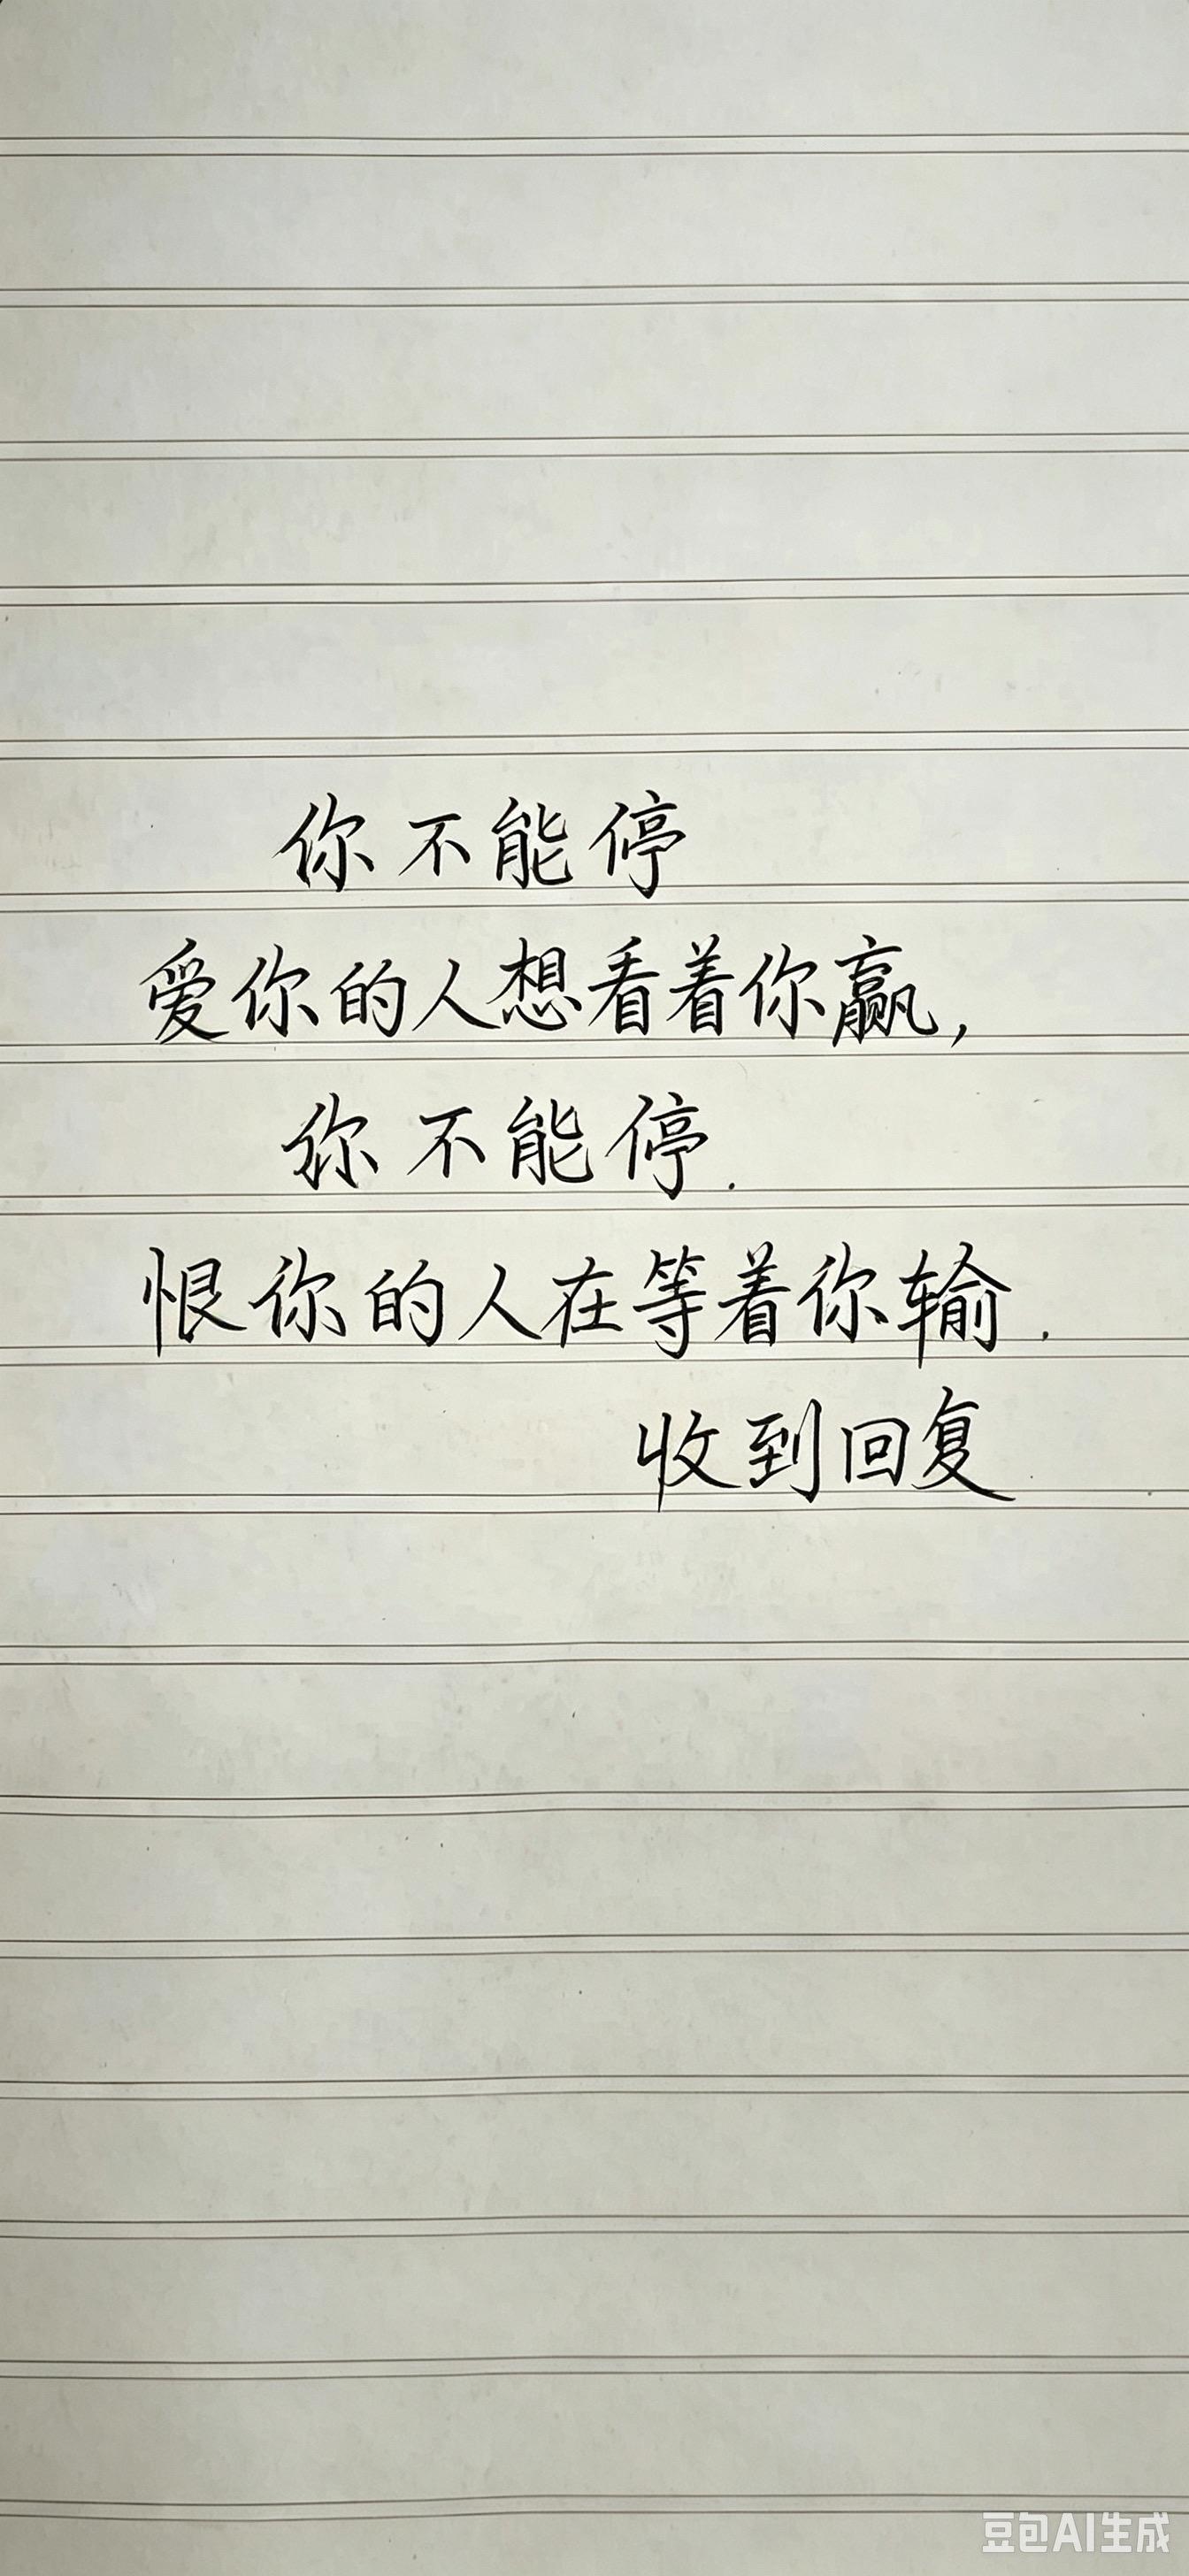 你不能停
爱你的人想看着你赢,
你不能停.
恨你的人在等着你输.
收到回复
豆包AI生成